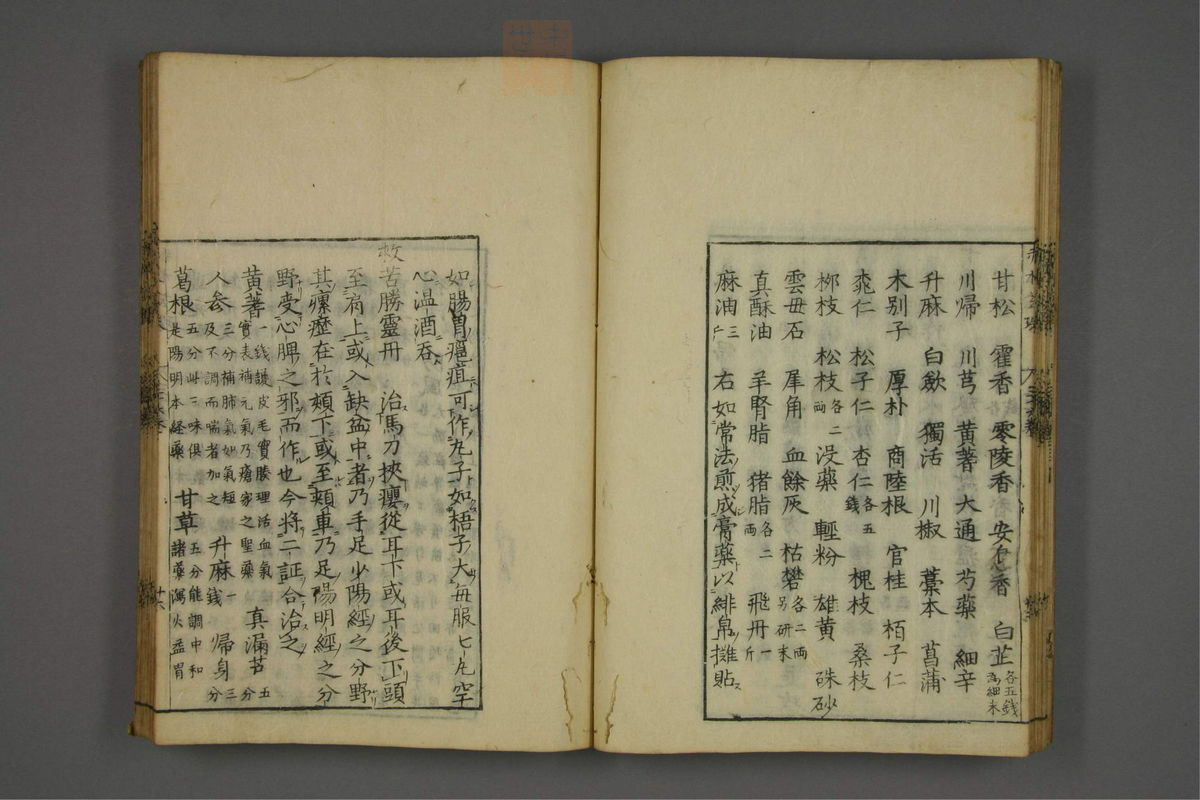 甘松 霍香 零陵香 安息香 白芷各五錢為細末
川帰 川芎 黄耆 大通 芍藥 細辛
升麻 白歛 獨活 川椒 藁本 菖蒲
木別子 厚朴 商陸根 官桂 栢子仁
桃仁 松子仁 杏仁各五錢 槐枝 桑枝
桞枝 松枝各二両 没藥 輕粉 雄黄 硃砂
雲母石 犀角 血餘灰 枯礬各二両另研末
真酥油 羊腎脂 猪脂各二両 飛丹一斤
麻油三斤 右如常法煎成膏藥以緋帛攤貼
如腸胃瘡疽可作丸子如梧子大毎服七丸空
心温酒呑
救苦勝靈丹 治馬刀挾癭從耳下或耳後下頭
至肩上或入缺盆中者乃手足少陽經之分野
其瘰癧在於頬下或至頬車乃足陽明經之分
野受心脾之邪而作也今将二証合治之
黄耆一錢護皮毛實腠理活血氣實表補元氣乃瘡家之聖藥 真漏芦五分
人参三分補肺氣如氣短及不調而喘者加之 升麻一錢 帰身三分
葛根五分此三味倶是陽明本經藥 甘草五分能調中和諸藥瀉火益胃